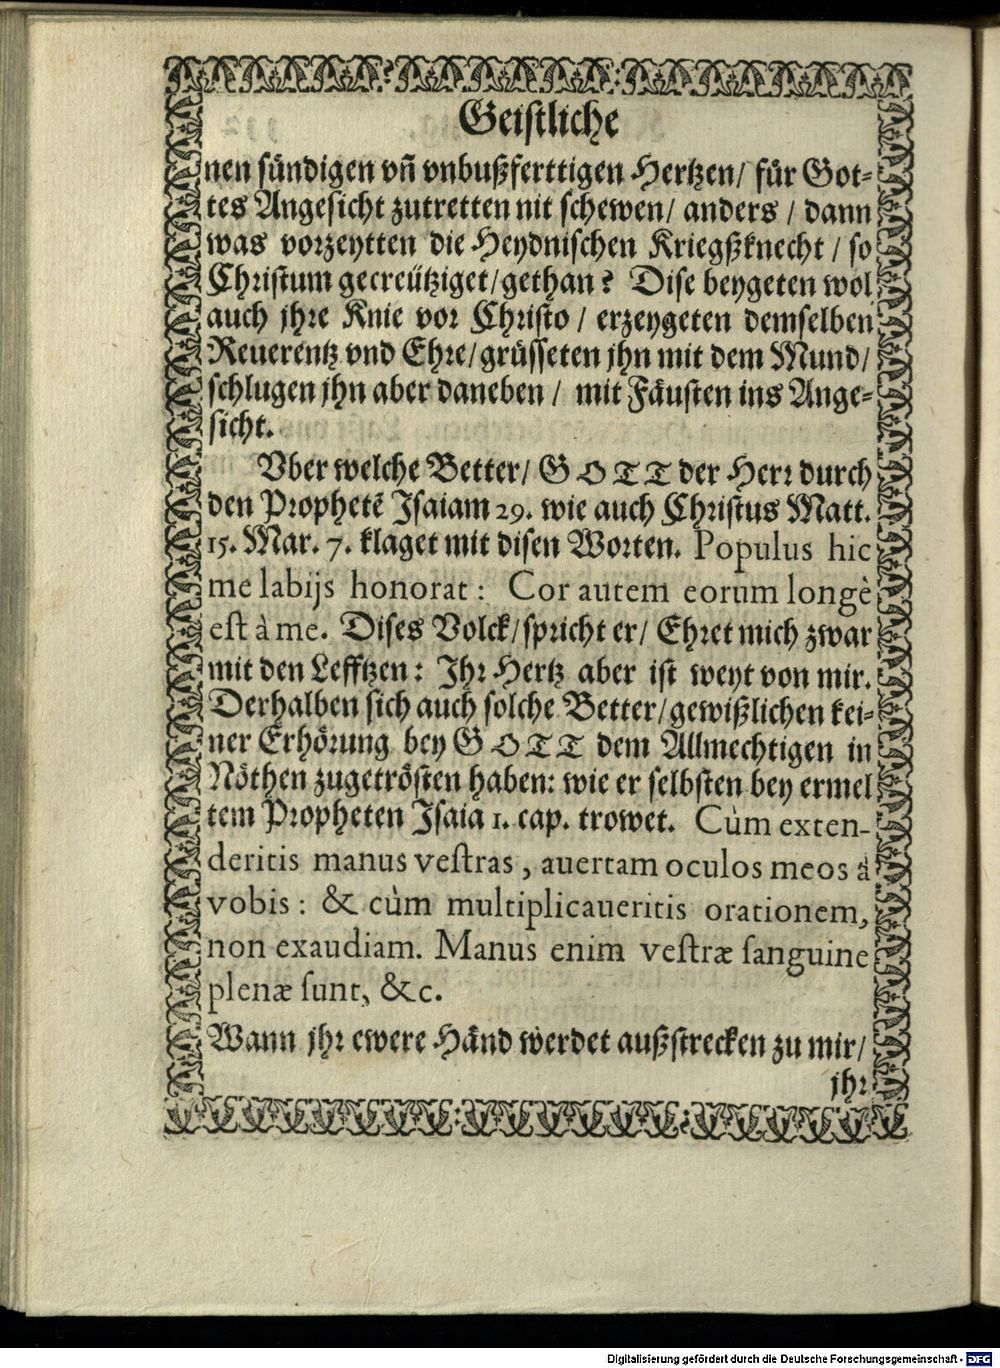 Geistliche
nen sündigen vñ vnbußferttigen Hertzen/ für Got-
tes Angesicht zutretten nit schewen/ anders / dann
was vorzeytten die Heydnischen Kriegßknecht / so
Christum gecreütziget/gethan? Dise beygeten wol
auch jhre Knie vor Christo / erzeygeten demselben
Reuerentz vnd Ehre/grüsseten jhn mit dem Mund/
schlugen jhn aber daneben / mit Fäusten ins Ange-
sicht.
Vber welche Better/ GOTT der Herr durch
den Prophetē Isaiam 29. wie auch Christus Matt.
15. Mar. 7. klaget mit disen Worten. Populus hic
me labijs honorat : Cor autem eorum longè
est à me. Dises Volck/spricht er/ Ehret mich zwar
mit den Lefftzen: Ihr Hertz aber ist weyt von mir.
Derhalben sich auch solche Better/gewißlichen kei-
ner Erhörung bey GOTT dem Allmechtigen in
Nöthen zugetrösten haben: wie er selbsten bey ermel
tem Propheten Isaia 1. cap. trowet. Cùm exten-
deritis manus vestras, auertam oculos meos à
vobis: & cùm multiplicaueritis orationem,
non exaudiam. Manus enim vestræ sanguine
plenæ sunt, &c.
Wann jhr ewere Händ werdet außstrecken zu mir/
jhr
Digitalisierung gefördert durch die Deutsche Forschungsgemeinschaft - DFG